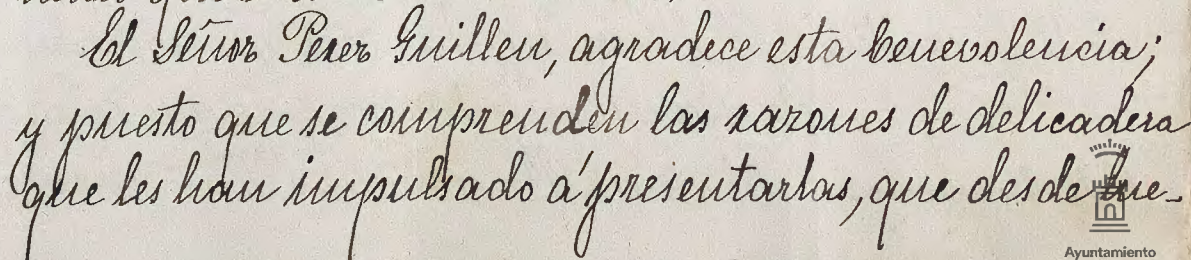 El Señor Perez Guillen, agradece esta benevolencia;
y puesto que se comprenden las razones de delicadeza
que les han impulsado á presentarlas, que desde lue-
Ayuntamiento